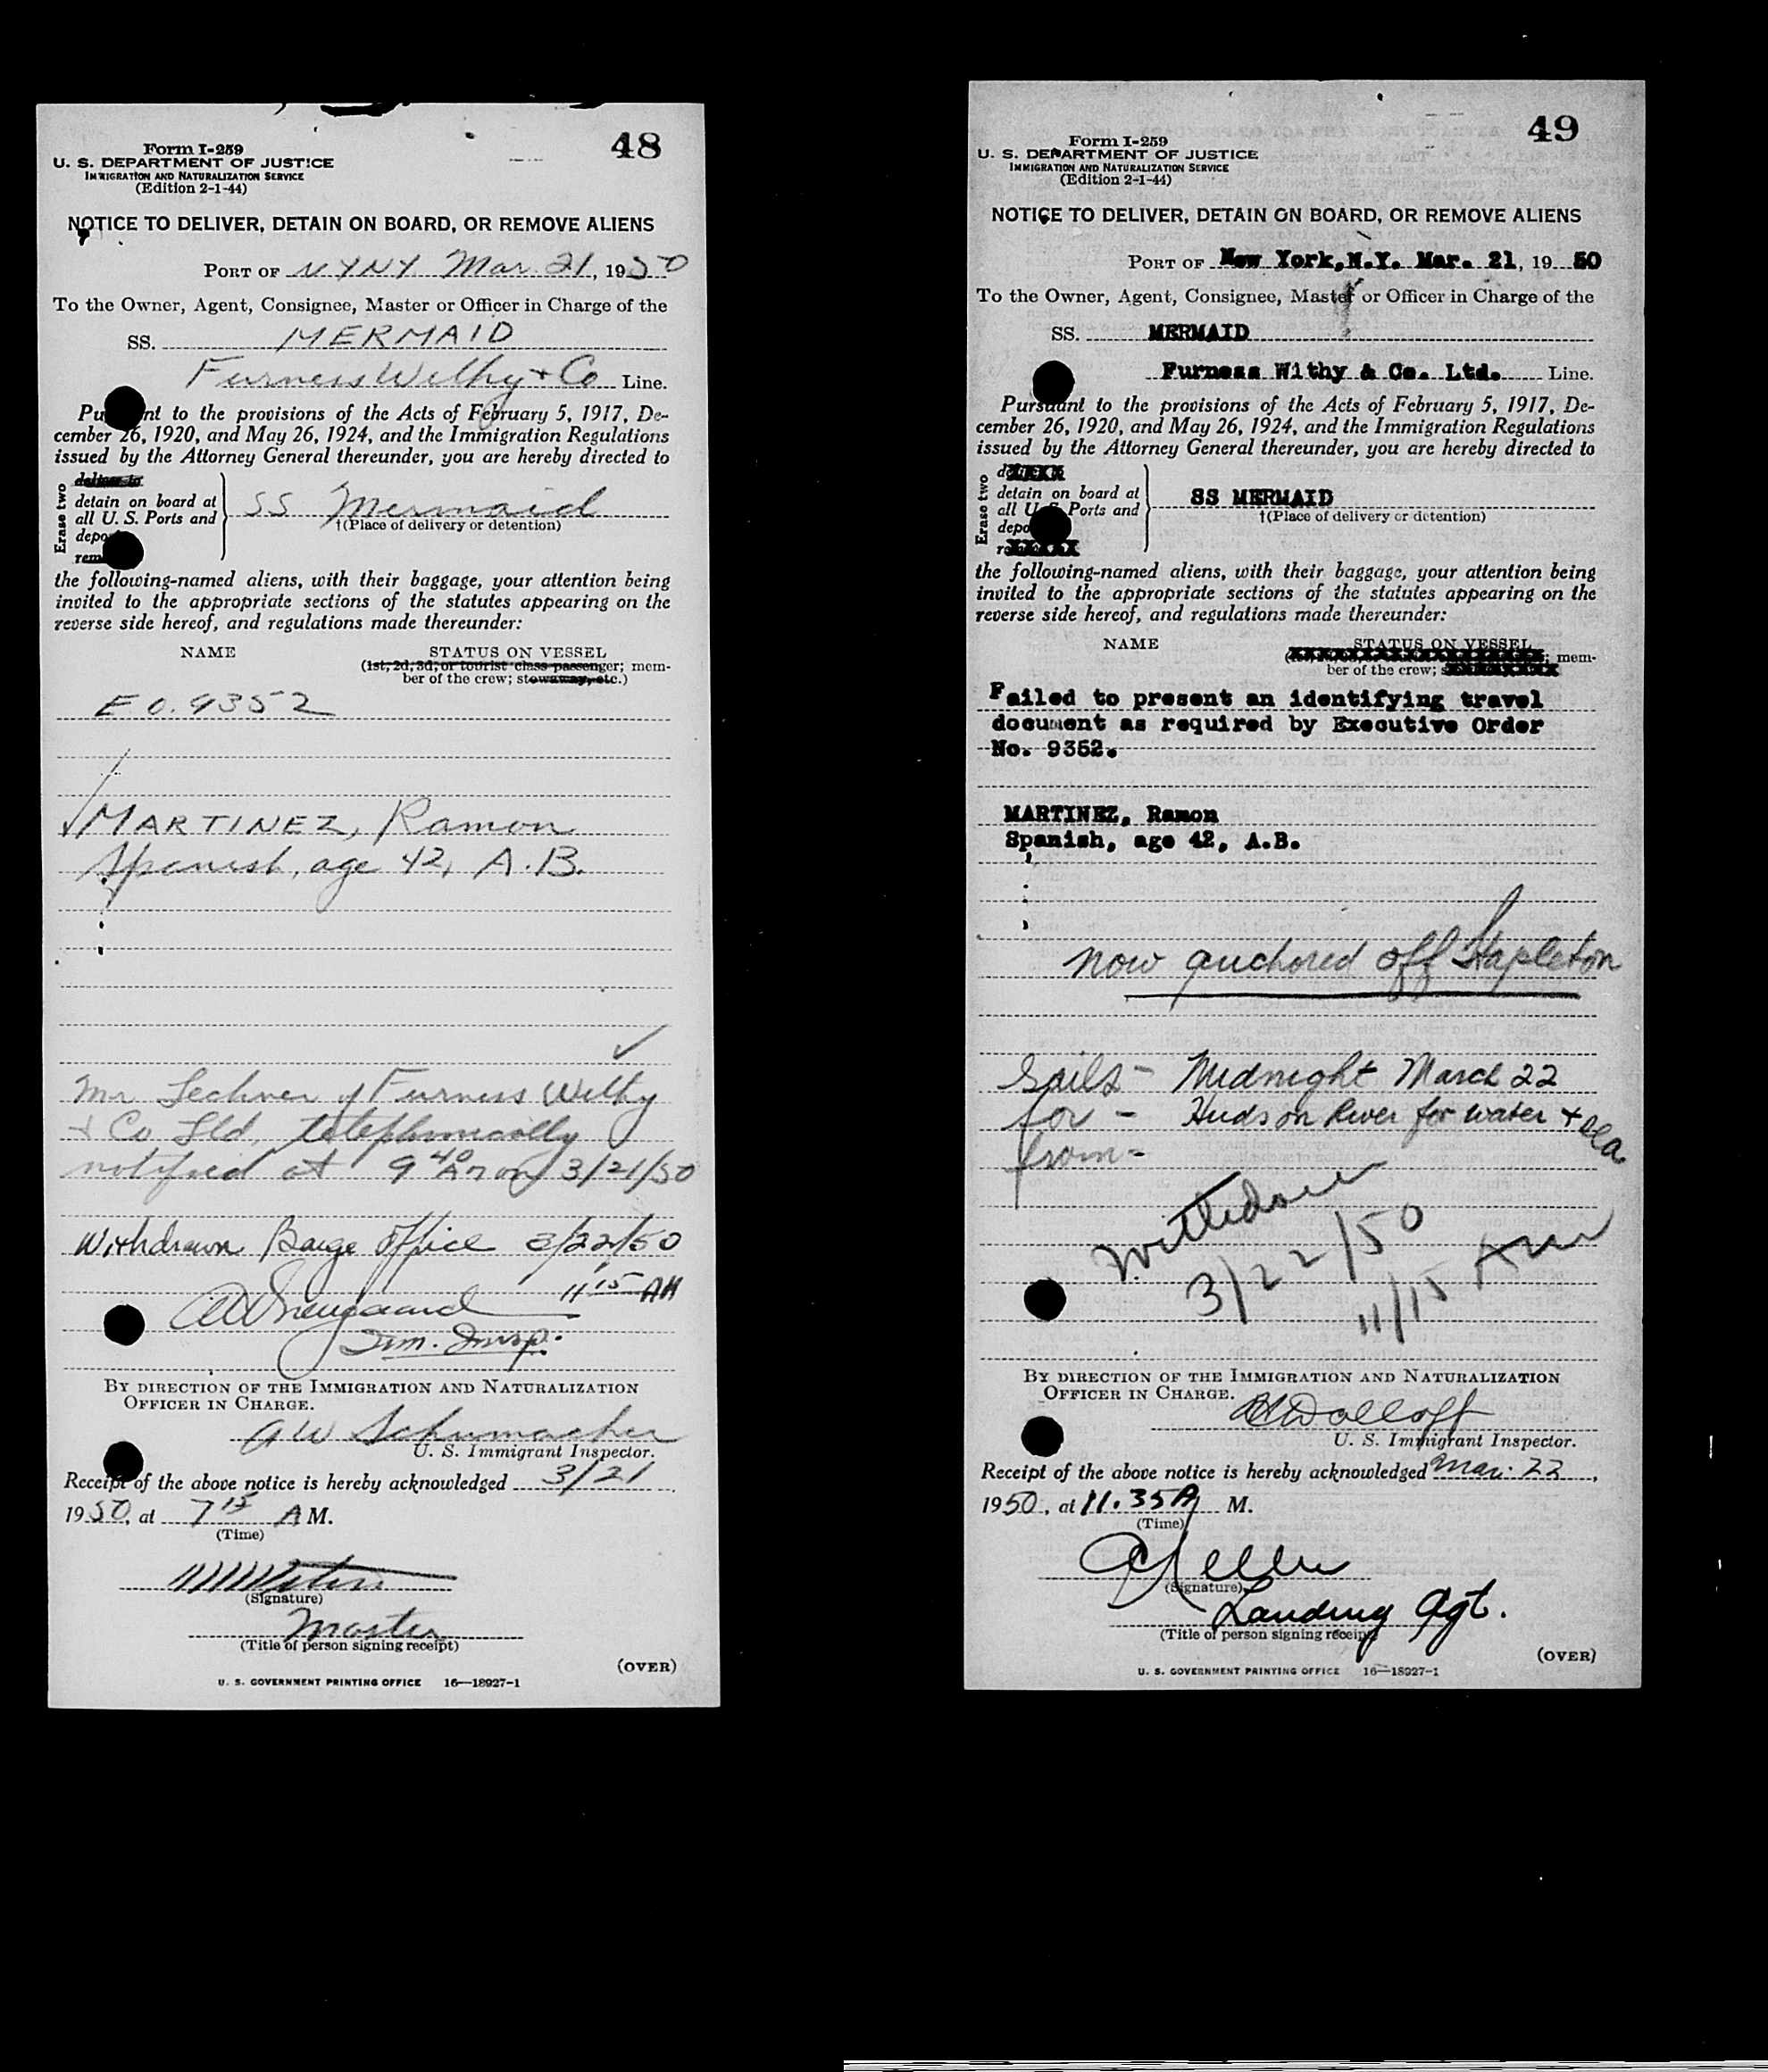 48
Form I-259
U. S. DEPARTMENT OF JUSTICE
IMMIGRATION AND NATURALIZATION SERVICE
(Edition 2-1-44)
NOTICE TO DELIVER, DETAIN ON BOARD, OR REMOVE ALIENS
PORT OF NYNY Mar. 21, 1950
To the Owner, Agent, Consignee, Master or Officer in Charge of the
SS. MERMAID
Furness Withy + Co Line.
Pursuant to the provisions of the Acts of February 5, 1917, De-
cember 26, 1920, and May 26, 1924, and the Immigration Regulations
issued by the Attorney General thereunder, you are hereby directed to
Erase two
deliver to
detain on board at
all U. S. Ports and
SS Mermaid
†(Place of delivery or detention)
the following-named aliens, with their baggage, your attention being
invited to the appropriate sections of the statutes appearing on the
reverse side hereof, and regulations made thereunder:
NAME STATUS ON VESSEL
(1st, 2d, 3d, or tourist class passenger; mem-
ber of the crew; stowaway, etc.)
E O. 9352
MARTINEZ, Ramon
Spanish, age 42, A.B.
Mr Lechner of Furness Withy
+ Co Ltd, telephonically
notified at 9 40 AM on 3/21/50
Withdrawn Barge Office 3/22/50
11 15 AM
Imm. Insp.
BY DIRECTION OF THE IMMIGRATION AND NATURALIZATION
OFFICER IN CHARGE.
A W Schumacher
U. S. Immigrant Inspector.
Receipt of the above notice is hereby acknowledged 3/21,
1950, at 7 15 A M.
(Time)
(Signature)
Master
(Title of person signing receipt)
(OVER)
U. S. GOVERNMENT PRINTING OFFICE 16—18927-1
49
Form I-259
U. S. DEPARTMENT OF JUSTICE
IMMIGRATION AND NATURALIZATION SERVICE
(Edition 2-1-44)
NOTICE TO DELIVER, DETAIN ON BOARD, OR REMOVE ALIENS
PORT OF New York, N.Y. Mar. 21, 19 50
To the Owner, Agent, Consignee, Master or Officer in Charge of the
SS. MERMAID
Furness Withy & Co. Ltd. Line.
Pursuant to the provisions of the Acts of February 5, 1917, De-
cember 26, 1920, and May 26, 1924, and the Immigration Regulations
issued by the Attorney General thereunder, you are hereby directed to
Erase two
detain on board at
all U. S. Ports and
SS MERMAID
†(Place of delivery or detention)
the following-named aliens, with their baggage, your attention being
invited to the appropriate sections of the statutes appearing on the
reverse side hereof, and regulations made thereunder:
NAME STATUS ON VESSEL
; mem-
ber of the crew;
Failed to present an identifying travel
document as required by Executive Order
No. 9352.
MARTINEZ, Ramon
Spanish, age 42, A.B.
now anchored off Stapleton
Sails - Midnight March 22
for - Hudson River for water + sea
from -
Withdrawn
3/22/50
11/15 AM
BY DIRECTION OF THE IMMIGRATION AND NATURALIZATION
OFFICER IN CHARGE.
U. S. Immigrant Inspector.
Receipt of the above notice is hereby acknowledged Mar. 22,
1950, at 11.35 A M.
(Time)
(Signature)
Landing Agt.
(Title of person signing receipt)
(OVER)
U. S. GOVERNMENT PRINTING OFFICE 16—18927-1